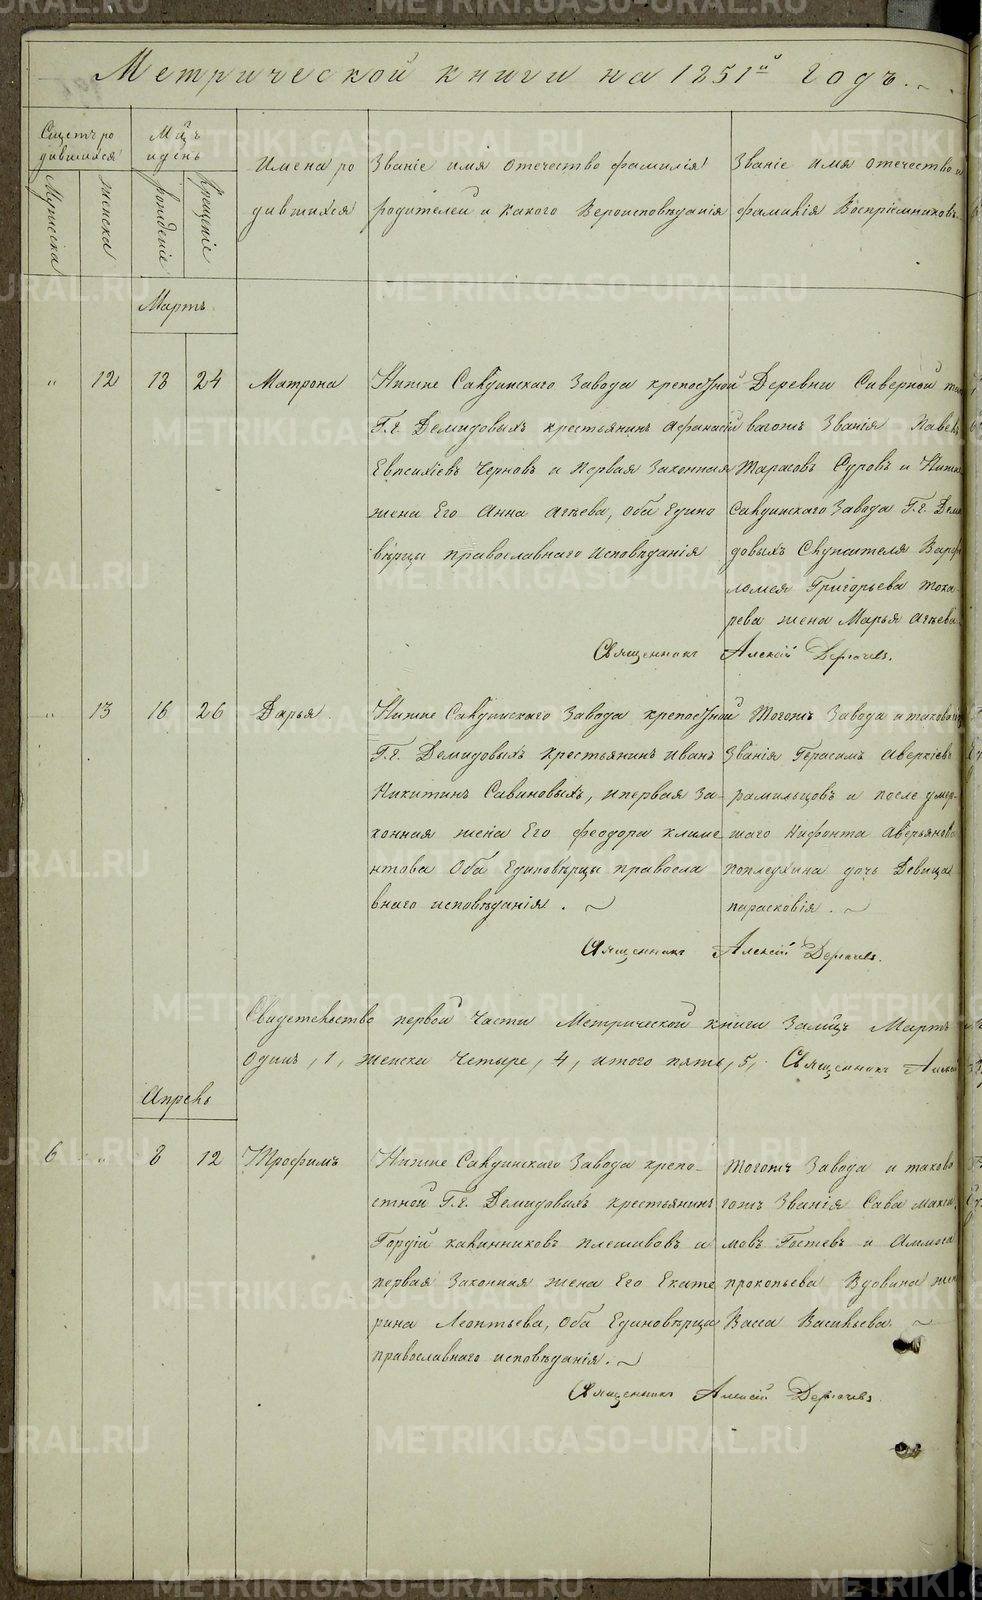 Метрической книги на 1851й годъ.
Счетъ ро
дившихся
Мужеска
женска
Мцъ
и день
рожденіе
крещеніе
Имена ро
дившихся
Званіе имя отечество фамилія
родителей и какого вероисповѣданія
Званіе имя отечество и
фамилія воспріемниковъ
Мартъ
" 12 18 24 Матрона
Нижне Салдинскаго завода крепостной
Г.г. Демидовыхъ крестьянинъ Афанасій
Евпсихіевъ Черновъ и первая законная
жена Его Анна Агѣева, оба Едино
вѣрцы православнаго исповѣданія
Деревни Северной
вагожъ званія Павелъ
Тарасовъ Суровъ и Нижне
Салдинскаго завода Г.г. Деми
довыхъ служителя Варфо
ломея Григорьева Тока
рева жена Марья Агѣева
Священникъ Алексій Дерягинъ.
" 13 16 26 Дарья.
Нижне Салдинскаго завода крепостной
Г.г. Демидовыхъ крестьянинъ Иванъ
Никитинъ Савиновыхъ, и первая за-
конная жена Его Феодора Климе
нтова оба Единовѣрцы правосла
внаго исповѣданія.
Тогожъ завода и таковагожъ
званія Герасимъ Аверкіевъ
и после умер-
шаго Нифонта Аверьянова
дочь девица
парасковія.
Священникъ Алексій
Свидетельство первой части Метрической книги за Мцъ Мартъ
Одинъ, 1, женска Четыре, 4, итого пять, 5, Священникъ Алексій
Апрель
6 " 8 12 Трофимъ
Нижне Салдинскаго завода крепо-
стной Г.г. Демидовыхъ крестьянинъ
Гордій Калинниковъ Плешивовъ и
первая законная жена Его Екате
рина Леонтьева, оба Единовѣрцы
православнаго исповѣданія.
Тогожъ завода и таково
гожъ званія Сава Макси
мовъ Гостевъ и
прокопьева вдовина жена
Васса Васильева.
Священникъ Алексій
METRIKI.GASO-URAL.RU